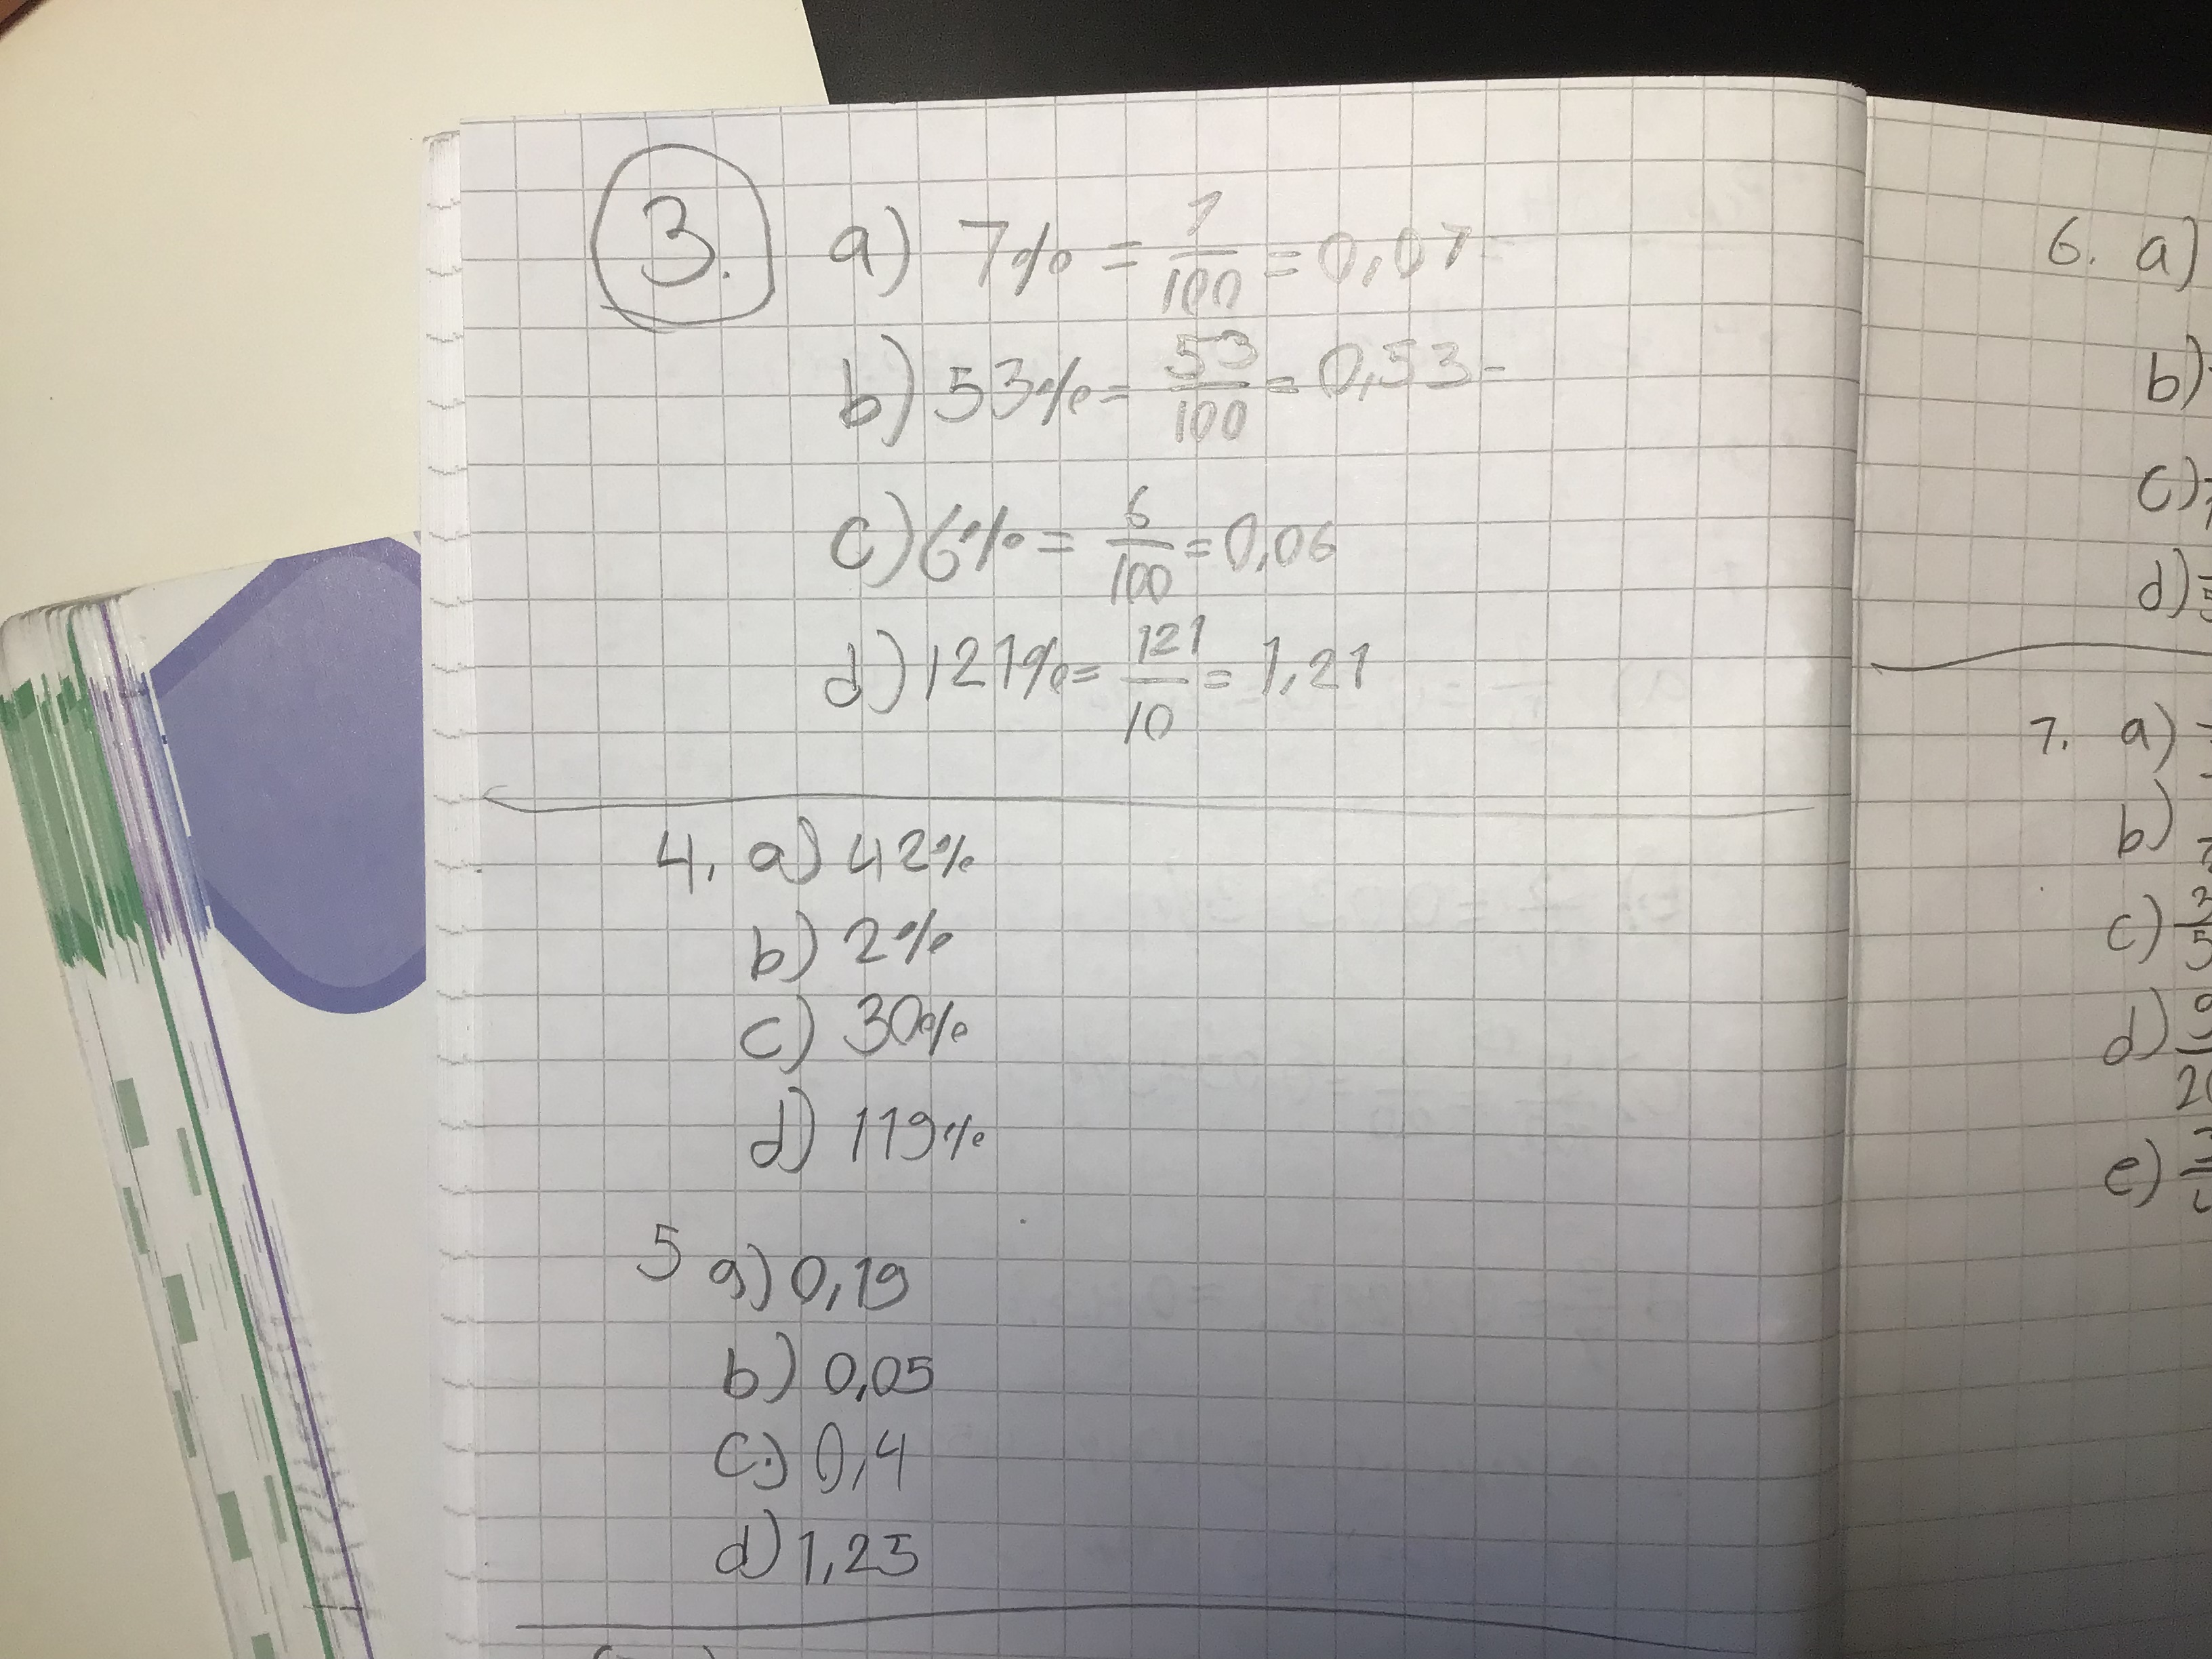 3. a) 7% = 7/100 = 0,07
b) 53% = 53/100 = 0,53-
c) 6% = 6/100 = 0,06
d) 121% = 121/10 = 1,21
4. a) 42%
b) 2%
c) 30%
d) 119%
5 a) 0,19
b) 0,05
c) 0,4
d) 1,25
6. a)
b)
c)
d)
7. a)
b)
c)
d)
e)